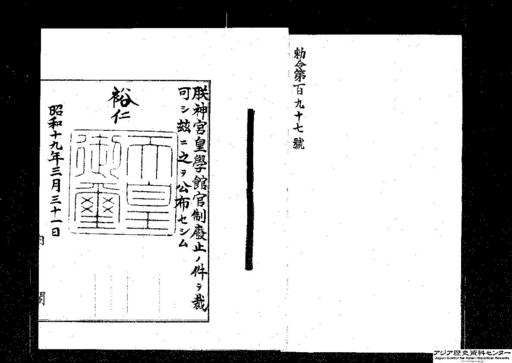 勅令第百九十七號
朕神宮皇學館官制廢止ノ件ヲ裁
可シ茲ニ之ヲ公布セシム
裕仁
天皇
御璽
昭和十九年三月三十一日
内閣
アジア歴史資料センター
Japan Center for Asian Historical Records